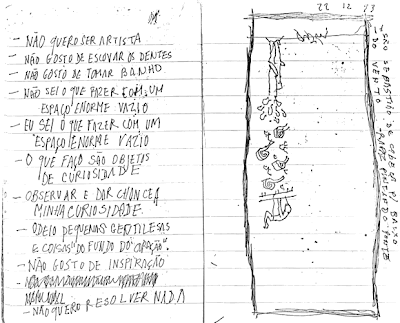 - NÃO QUERO SER ARTISTA
- NÃO GOSTO DE ESCOVAR OS DENTES
- NÃO GOSTO DE TOMAR BANHO
- NÃO SEI O QUE FAZER COM UM
ESPAÇO ENORME VAZIO
- EU SEI O QUE FAZER COM UM
ESPAÇO ENORME VAZIO
- O QUE FAÇO SÃO OBJETOS
DE CURIOSIDADE
- OBSERVAR E DAR CHANCE A
MINHA CURIOSIDADE."
- ODEIO PEQUENAS GENTILESAS
E COISAS "DO FUNDO DO CORAÇÃO".
- NÃO GOSTO DE INSPIRAÇÃO
- NÃO QUERO RESOLVER NADA
22 12 13
SÃO SEBASTIÃO DE CABEÇA P/ BAIXO
- DO VENTO